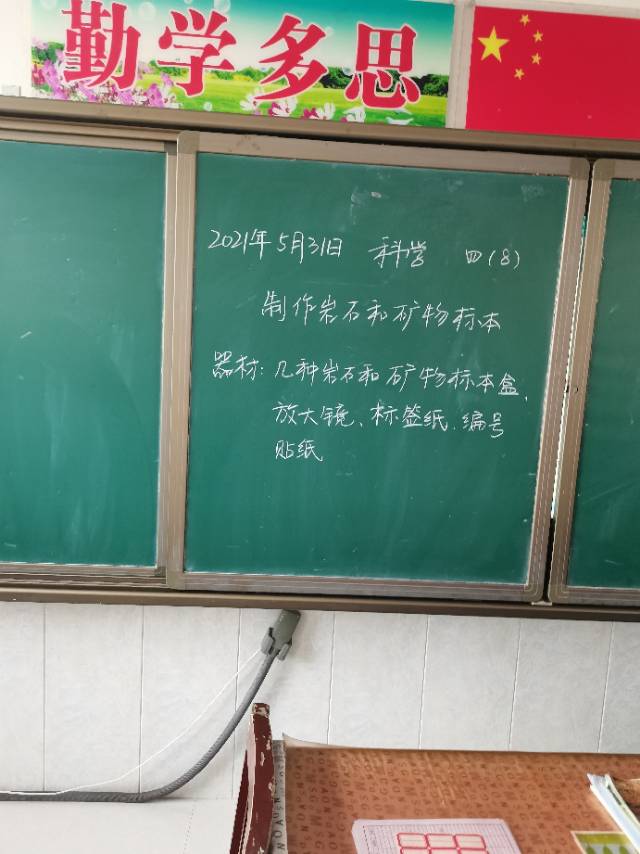 勤学多思
2021年5月31日 科学 四(8)
制作岩石和矿物标本
器材:几种岩石和矿物标本盒、
放大镜、标签纸、编号
贴纸